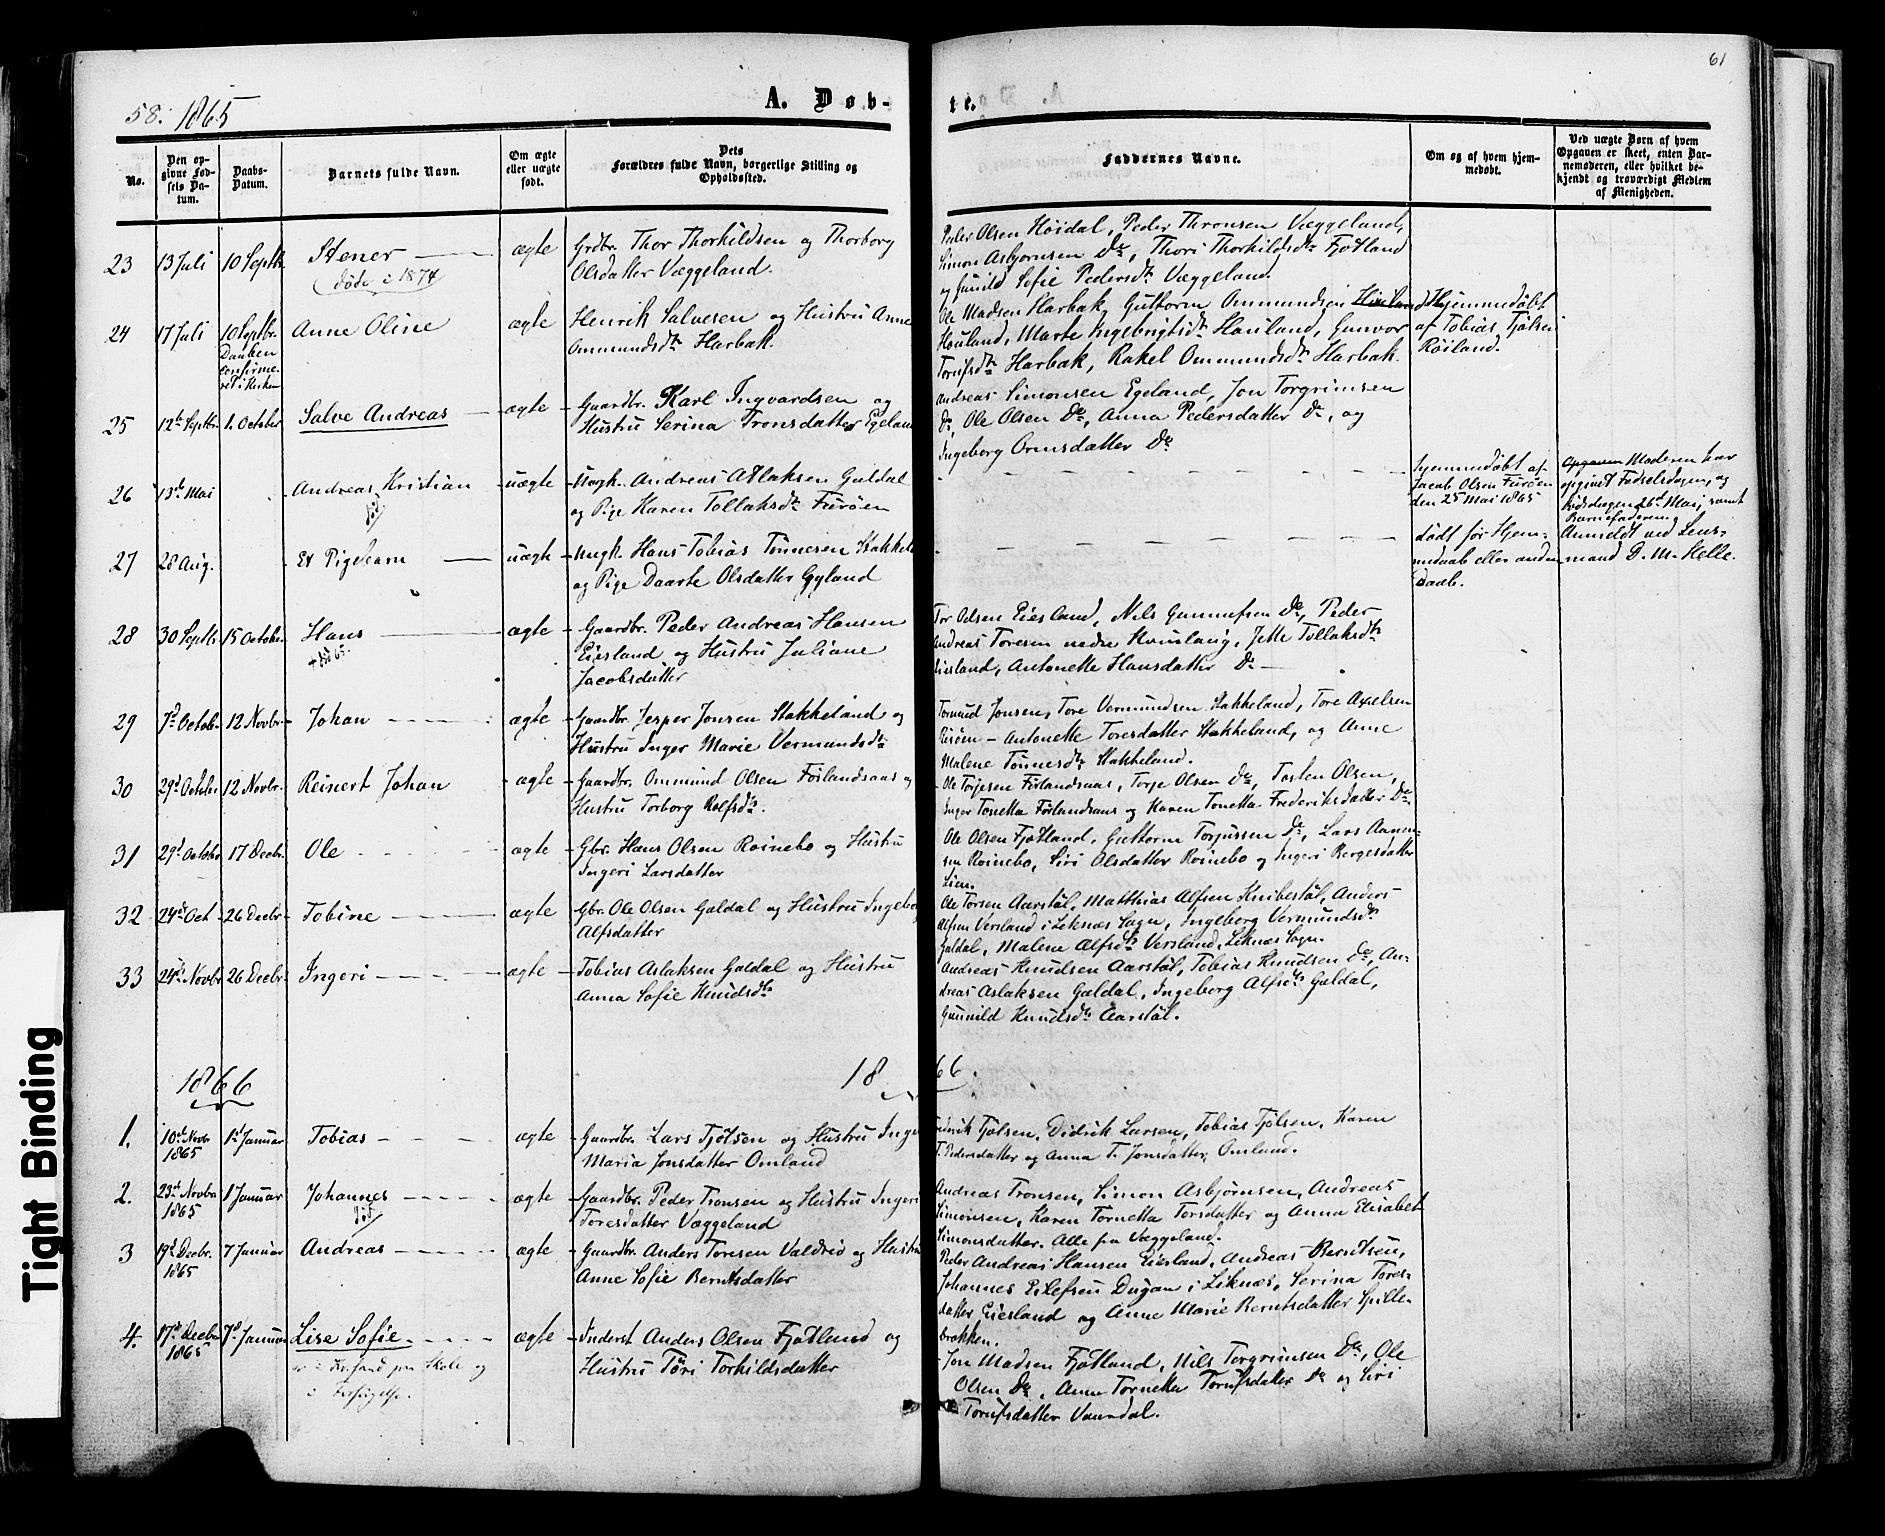 58. 1865
A. Døb-
te.
61
No.
Den op-
givne Fød-
sels Da-
tum.
Daabs-
Datum.
Barnets fulde Navn.
Om ægte
eller uægte
født.
Dets
Forældres fulde Navn, borgerlige Stilling og
Opholdssted.
Faddernes Navne.
Om og af hvem hjem-
medøbt.
Ved uægte Børn af hvem
Opgaven er skeet, enten Bar-
nemoderen, eller hvilket be-
kjendt og troværdigt Medlem
af Menigheden.
23 13 Juli 10 Septbr. Stener ægte
døde i 1874
Grdbr. Thor Thorkildsen og Thorborg
Olsdatter Væggeland.
Peder Olsen Høidal, Peder Thronsen Væggeland,
Simon Asbjørnsen Do, Thori Thorkildsdtr Fjotland
og Gunild Sofie Pedersdtr Væggeland.
24 17 Juli 10 Septbr. Anne Oline ægte
Daaben
confirme-
ret i Kirken
Henrik Salvesen og Hustru Anne
Ommundsdtr Harbak.
Ole Madsen Harbak, Guttorm Ommundsen
Houland, Marte Ingebrigtsdtr Houland, Gunvor
Torufsdtr Harbak, Rakel Ommundsdtr Harbak.
Hjemmedøbt
af Tobias Tjølsen
Røiland.
25 12te Septbr. 1. October Salve Andreas ægte
Gaardbr. Karl Ingvardsen og
Hustru Serina Tronsdatter Egeland
Andreas Simonsen Egeland, Jon Torgrimsen
Do, Ole Olsen Do, Anna Pedersdatter Do, og
Ingeborg Ormsdatter Do
26 13de Mai Andreas Kristian uægte
død
Ungk. Andreas Aslaksen Galdal
og Pige Karen Tollaksdtr Furøen
hjemmedøbt af
Jacob Olsen Furøen
den 25 Mai 1865
Opgaven Moderen har
opgivet Fødselsdagen, og
Dødsdagen 26d Mai, samt
Barnefaderen
27 28 Aug. Et Pigebarn uægte
Ungk. Hans Tobias Tønnesen Stakkel.
og Pige Daarte Olsdatter Gyland
dødt før Hjem-
medaab eller anden
Daab.
Anmeldt ved Lens-
mand D. M. Helle.
28 30 Septb. 15 Octobr. Hans ægte
+ død 65.
Gaardbr. Peder Andreas Hansen
Eiesland og Hustru Juliane
Jacobsdatter
Tor Olsen Eiesland, Nils Gunnufsen Do, Peder
Andreas Toresen nedre Kvinlaug, Jette Tollaksdtr
Eiesland, Antonette Hansdatter Do
29 7d Octob. 12 Novbr. Johan ægte
Gaardbr. Jesper Jonsen Stakkeland og
Hustru Inger Marie Vermundsdtr
Tormud Jonsen, Tore Vermundsen Stakkeland, Tore Axelsen
Risøen – Antonette Toresdatter Stakkeland, og Anne
Malene Tønnesdtr Stakkeland.
30 29d Octobr. 12 Novbr. Reinert Johan ægte
Gaardbr. Ommund Olsen Førlandsaas og
Hustru Torborg Rolfsdtr.
Ole Torjesen Førlandsaas, Torje Olsen Do, Tosten Olsen,
Inger Tonetta Førlandsaas og Karen Tonetta Frederiksdatter Do.
31 29d Octobr. 17 Decbr. Ole ægte
Gbr. Hans Olsen Roinebo og Hustru
Ingeri Larsdatter
Ole Olsen Fjotland, Guttorm Torjussen Do, Lars Aanen-
sen Roinebo, Siri Olsdatter Roinebo og Ingeri Bergesdatter
Lien.
32 24d Oct 26 Decbr. Tobine ægte
Gbr. Ole Olsen Galdal og Hustru Ingeborg
Alfsdatter
Ole Torsen Aarstøl, Matthias Alfsen Knibestøl, Anders
Alfsen Versland i Liknæs Sogn, Ingeborg Vermundsdtr
Galdal, Malene Alfsdtr Versland, Liknæs Sogn.
33 24d Novbr 26 Decbr. Ingeri ægte
Tobias Aslaksen Galdal og Hustru
Anna Sofie Knudsdtr
Andreas Knudsen Aarstøl, Tobias Knudsen Do, An-
dreas Aslaksen Galdal, Ingeborg Alfsdtr Galdal,
Gunvild Knudsdtr Aarstøl.
1866
1866.
1. 10de Novbr 1865 1d Januar Tobias ægte
Gaardbr. Lars Tjøtsen og Hustru Inger
Maria Jonsdatter Omland
Tjølsen, Didrik Larsen, Tobias Tjølsen, Karen
T. Pedersdatter og Anna T. Jonsdatter, Omland.
2. 23de Novbr 1865 1 Januar Johannes ægte
død
Gaardbr. Peder Tronsen og Hustru Ingeri
Toresdatter Væggeland
Andreas Tronsen, Simon Asbjørnsen, Andreas
Simonsen, Karen Tornetta Torsdatter og Anna Elisabet
Simonsdatter. Alle fra Væggeland.
3 19d Decbr. 1865 7 Januar Andreas ægte
Gaardbr. Anders Toresen Valdrid og Hustru
Anne Sofie Berntsdatter
Peder Andreas Hansen Eiesland, Andreas Berntsen,
Johannes Eilefsen Dugan i Liknæs, Serina Tores-
datter Eiesland og Anne Marie Berntsdatter Spille-
brokken.
4. 17d Decbr 1865 7d Januar Lise Sofie ægte
er i Krsand paa Skole og
i Forsørgelse.
Inderst Anders Olsen Fjotland og
Hustru Tori Torkildsdatter
Jon Madsen Fjotland, Nils Torgrimsen Do, Ole
Olsen Do, Anna Tornetta Torufsdatter Do og Siri
Torufsdatter Vaurdal.
Tight Binding